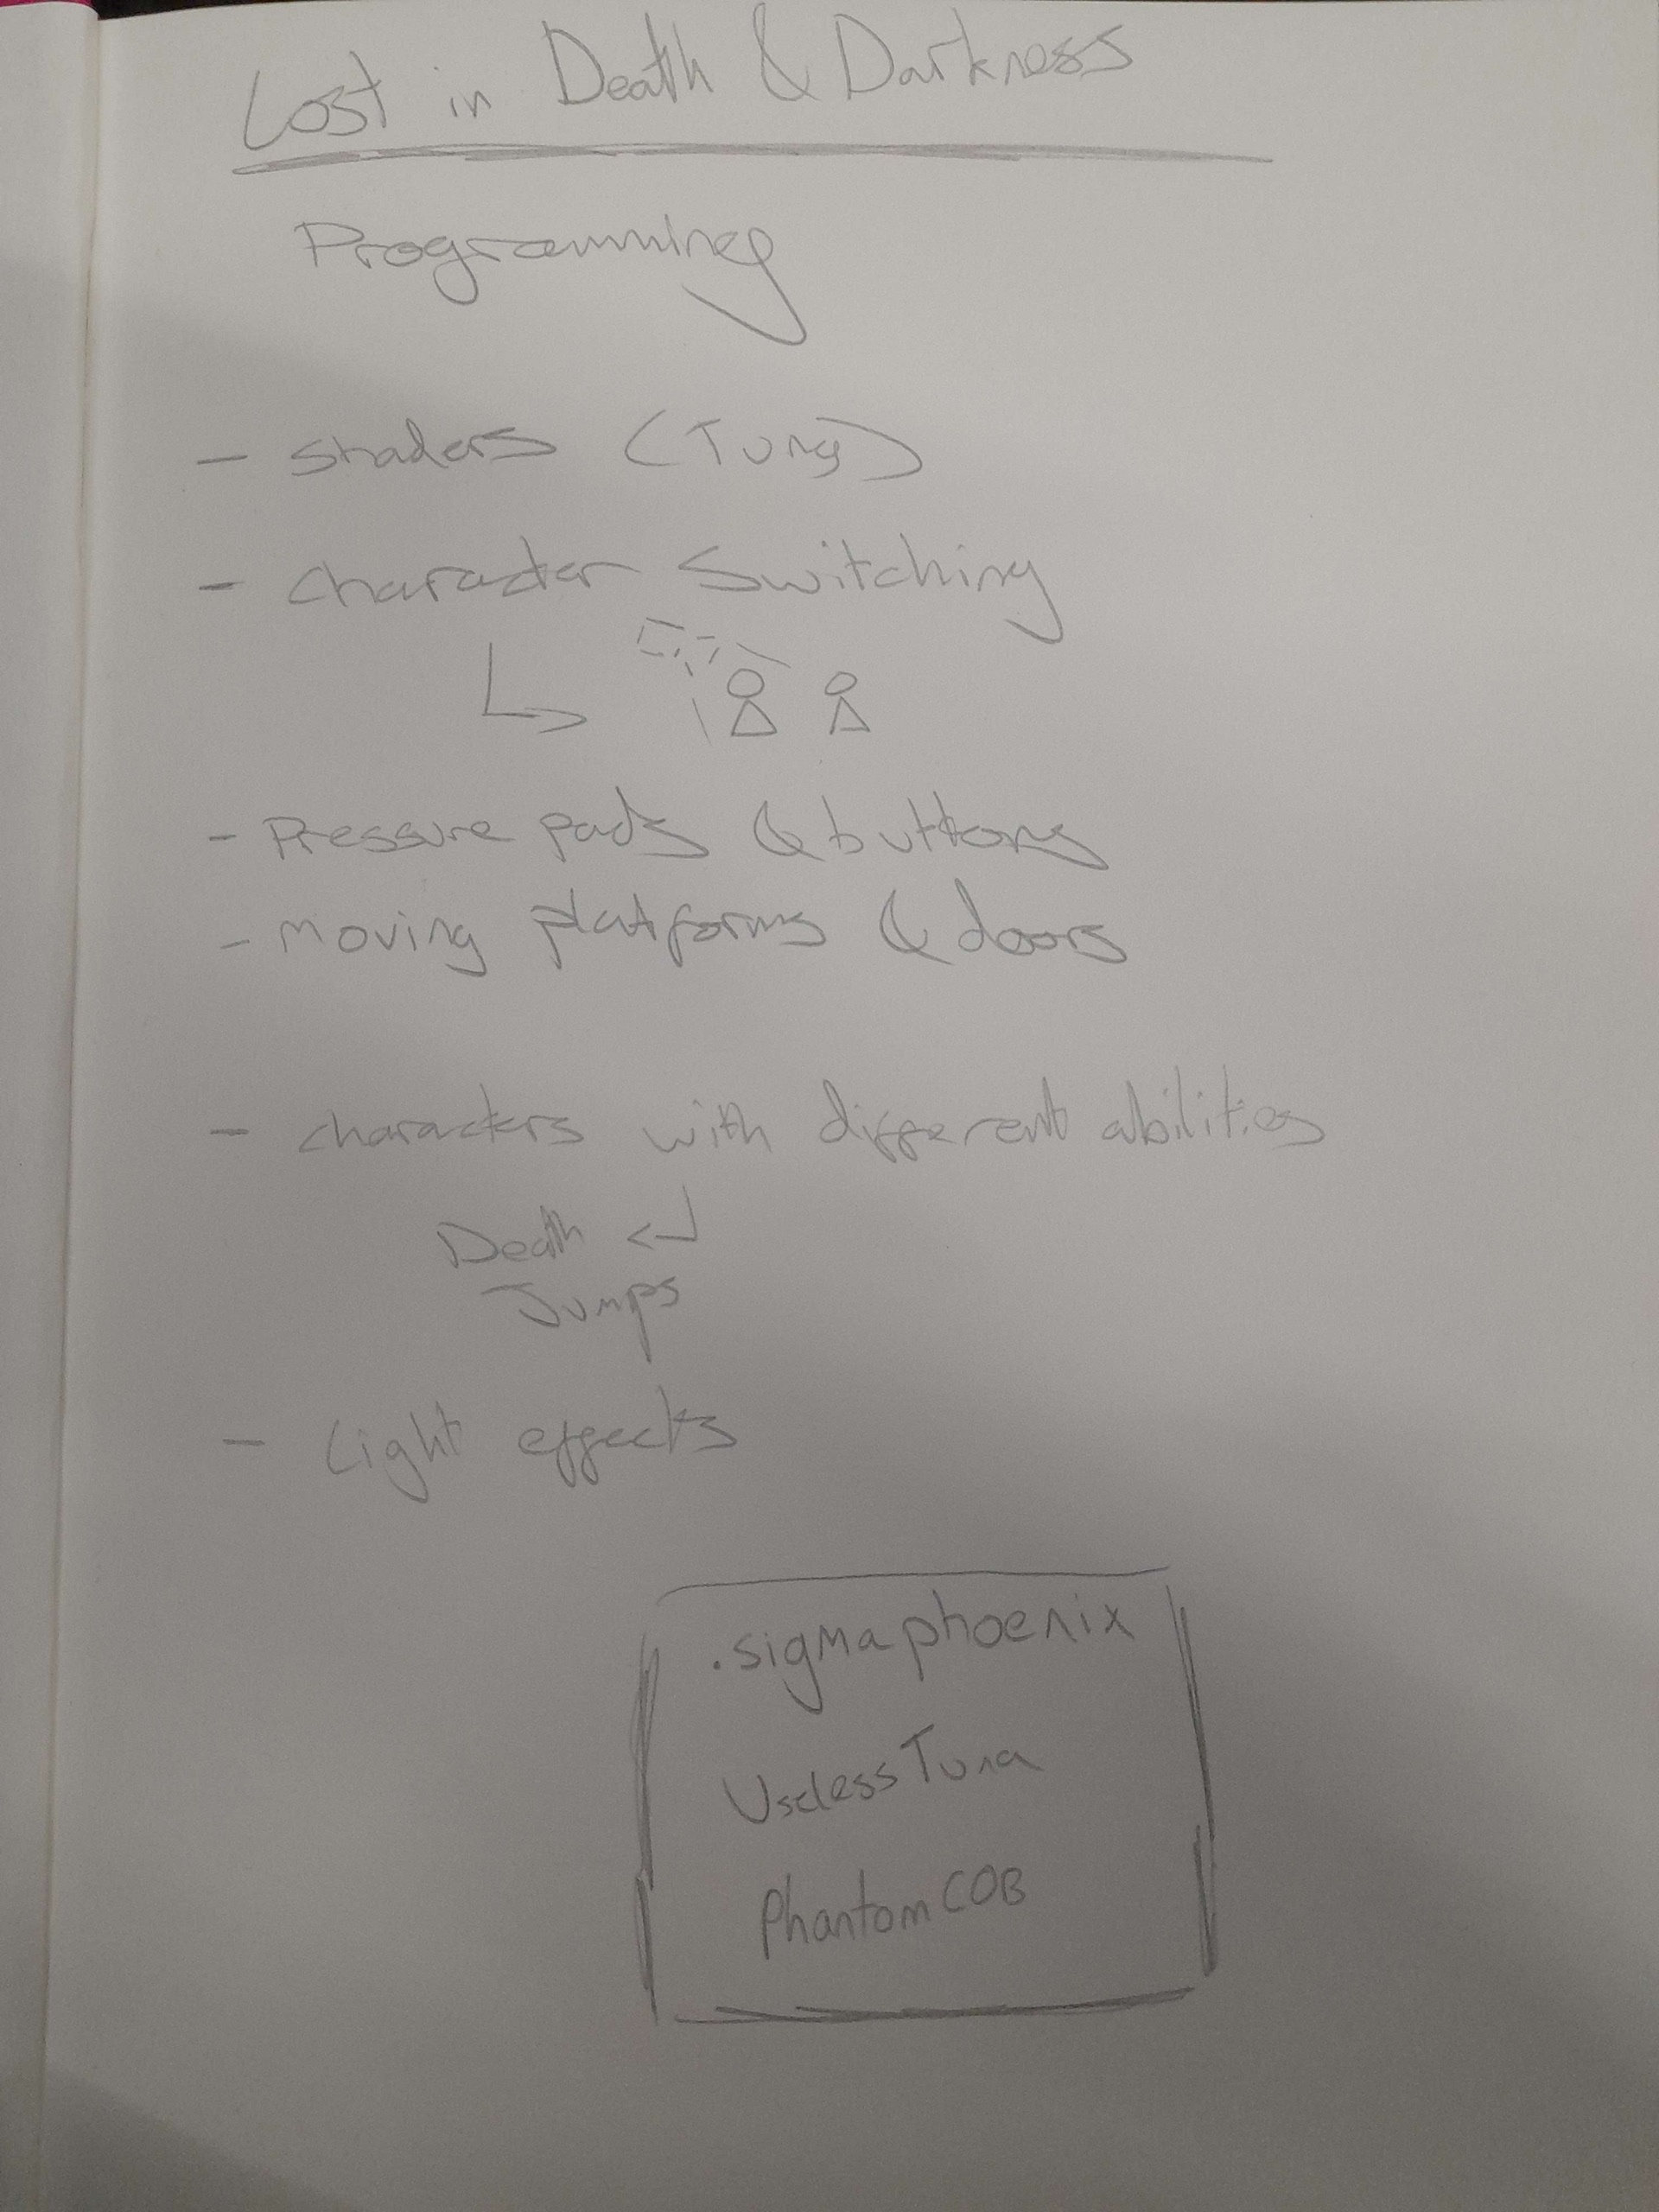 Lost in Death & Darkness
Programming
- shaders (Tung)
- character Switching
- Pressure pads & buttons
- moving platforms & doors
- characters with different abilities
Death
Jumps
- Light effects
.sigmaphoenix
UselessTuna
PhantomCOB